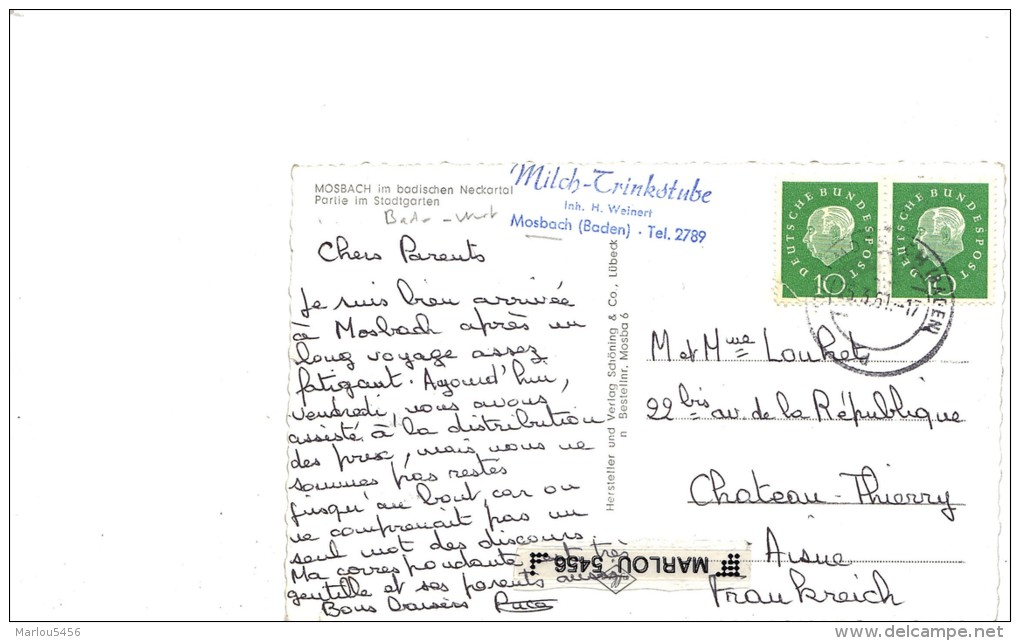 MOSBACH im badischen Neckartal
Partie im Stadtgarten
Milch-Trinkstube
Inh. H. Weinert
Mosbach (Baden) · Tel. 2789
Chers Parents
Je suis bien arrivée
à Mosbach après un
long voyage assez
fatigant. Aujourd'hui,
vendredi, nous avons
assisté à la distribution
des prix, mais nous ne
sommes pas restés
jusqu'au bout, car on
ne comprenait pas un
seul mot des discours.
Ma correspondante est très
gentille et ses parents aussi
Bons baisers
Hersteller und Verlag Schöning & Co., Lübeck
n Bestellnr. Mosba 6
DEUTSCHE BUNDESPOST
10
DEUTSCHE BUNDESPOST
10
M et Mme
22 bis av. de la République
Chateau-Thierry
Aisne
Frankreich
MARLOU 5456
Marlou5456
delcampe.net